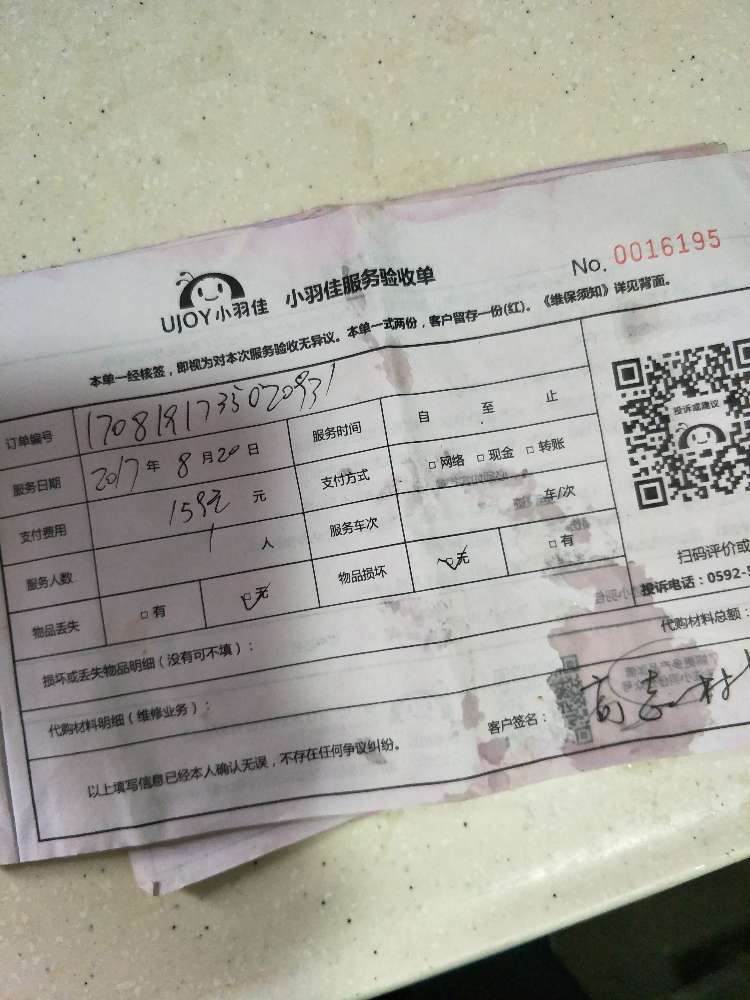 UJOY小羽佳 小羽佳服务验收单
No. 0016195
本单一经核签，即视为对本次服务验收无异议。本单一式两份，客户留存一份(红)。《维保须知》详见背面。
订单编号 1708191735070931
服务时间 自 至 止
服务日期 2017年8月20日
支付方式 □网络 □现金 □转账
支付费用 159元 元
服务车次 车/次
服务人数 1 人
物品丢失 □有 □无
物品损坏 □无 □有
损坏或丢失物品明细（没有可不填）：
代购材料明细（维修业务）：
代购材料总额：
以上填写信息已经本人确认无误，不存在任何争议纠纷。
客户签名：
投诉或建议
扫码评价或
投诉电话：0592-5